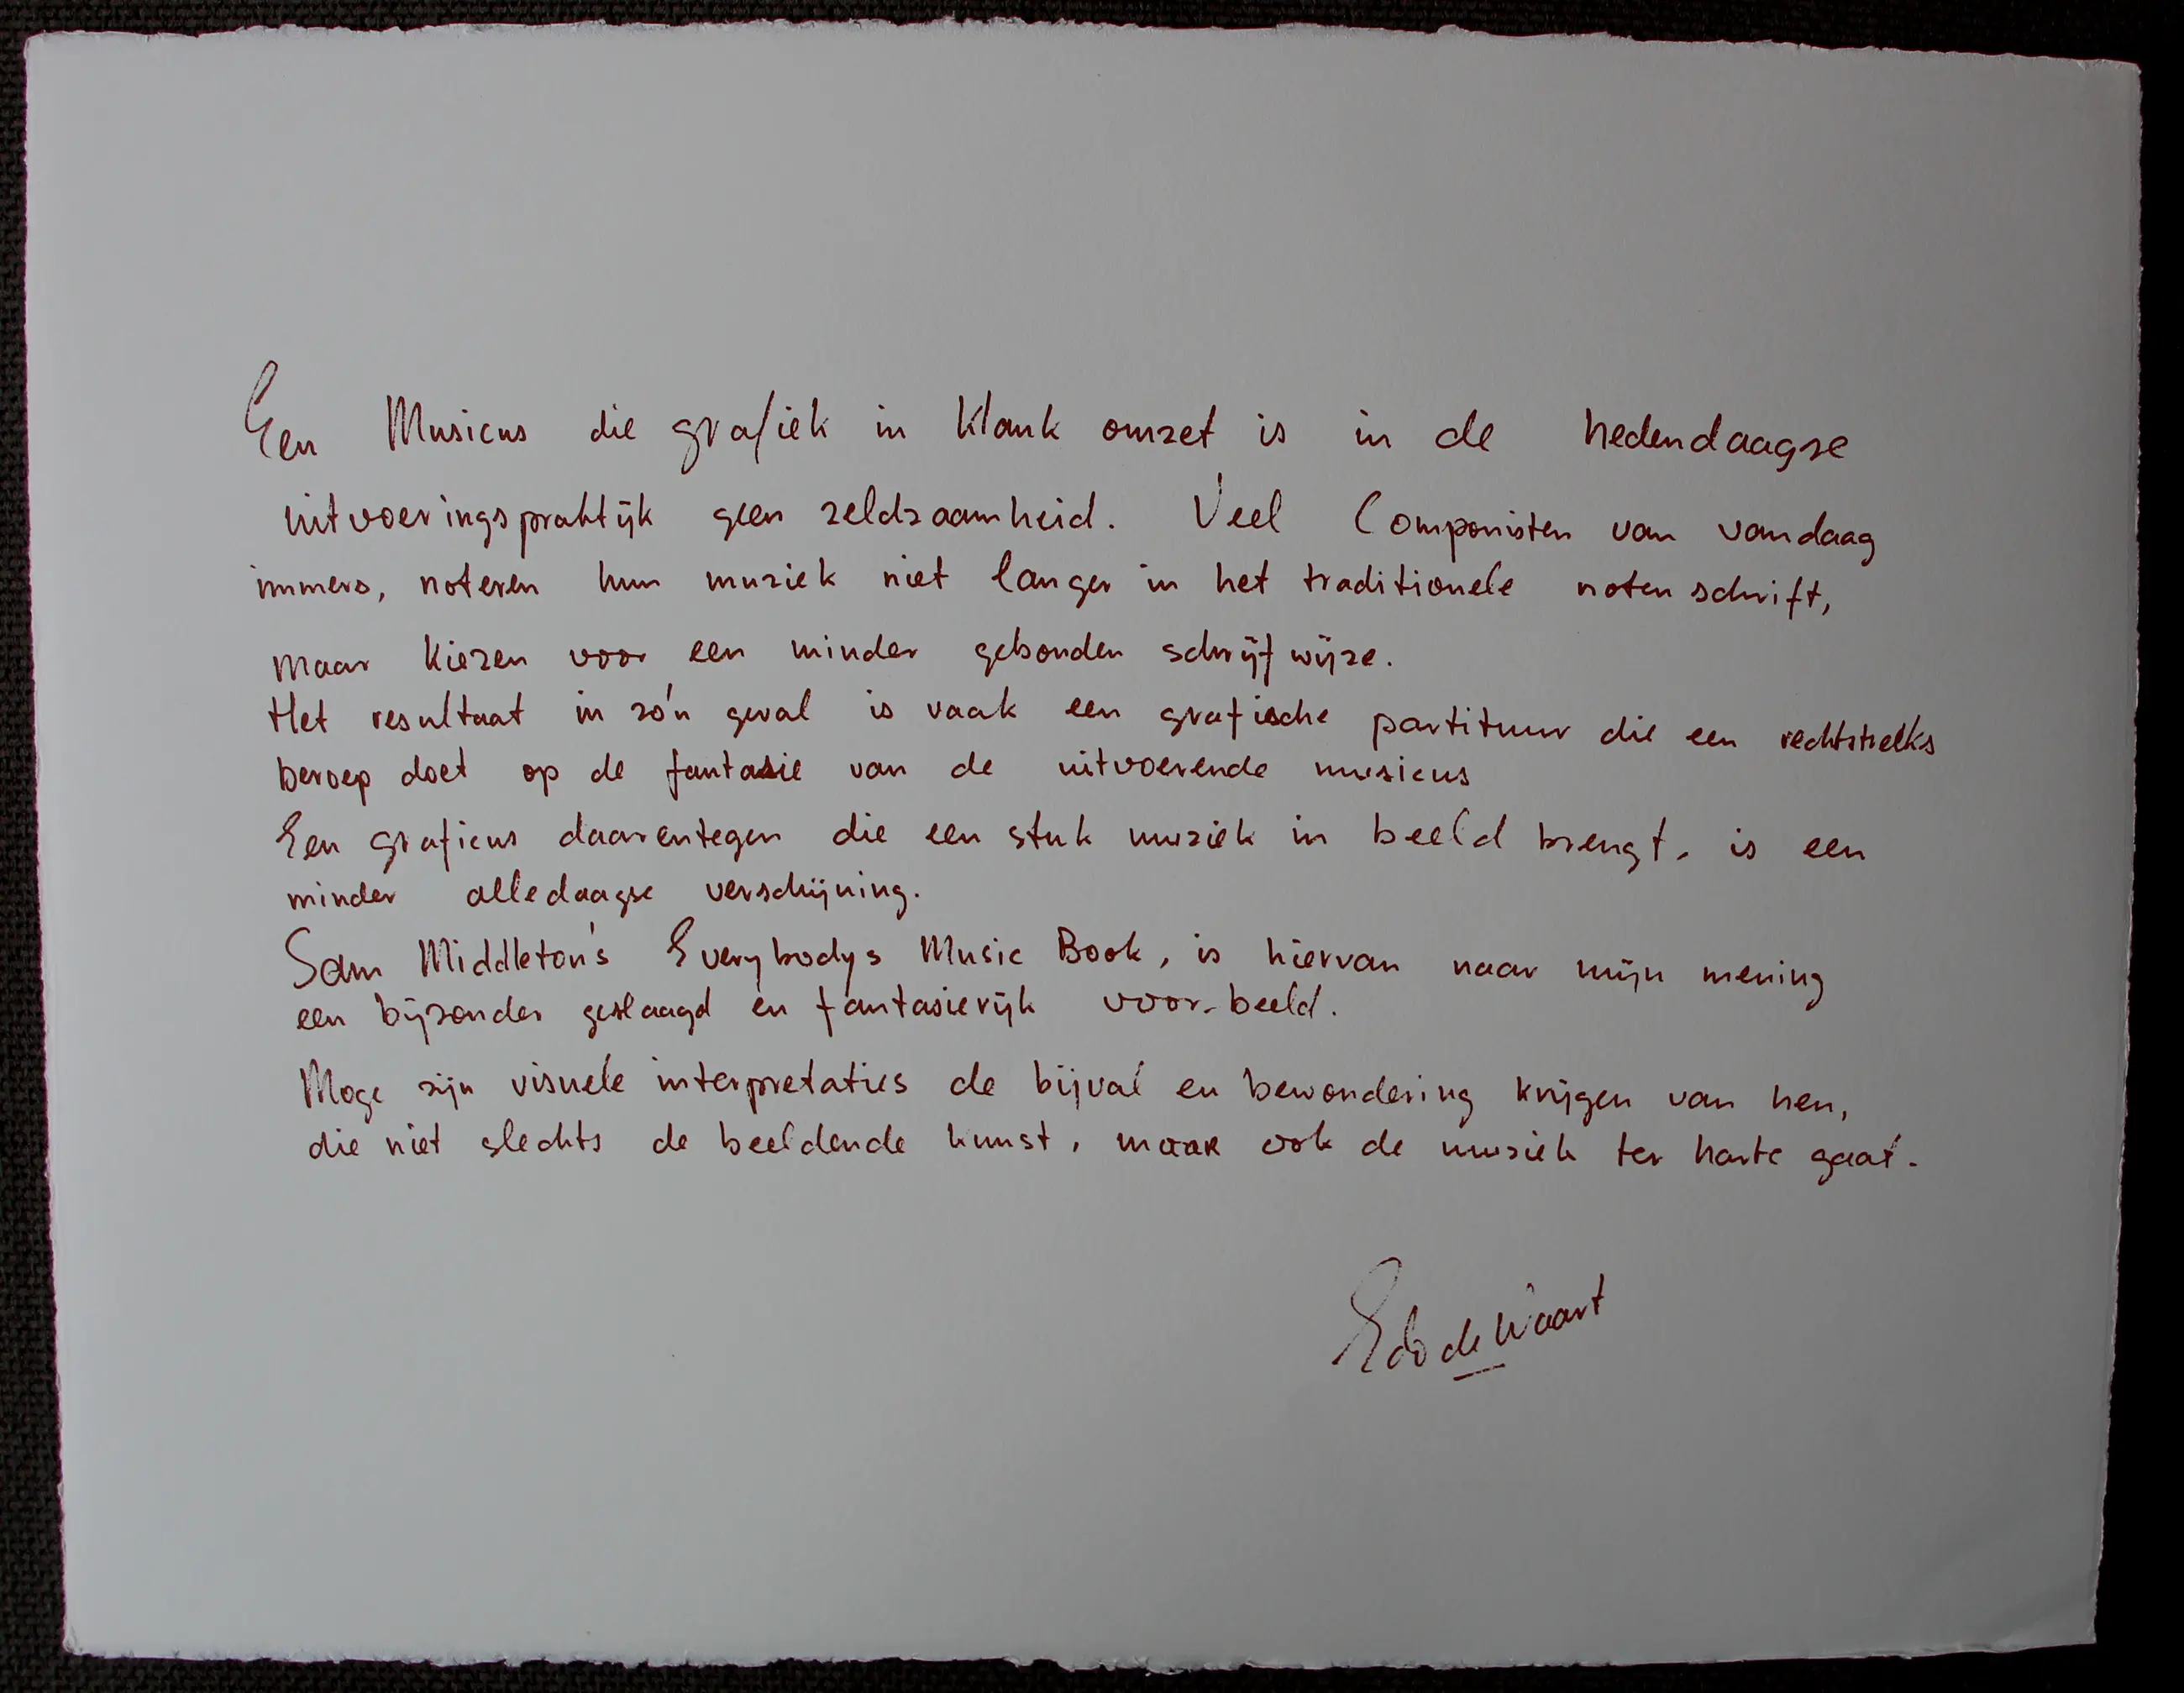 Een Musicus die grafiek in Klank omzet is in de hedendaagse
uitvoeringspraktijk geen zeldzaamheid. Veel Componisten van vandaag
immers, noteren hun muziek niet langer in het traditionele notenschrift,
maar kiezen voor een minder gebonden schrijfwijze.
Het resultaat in zó'n geval is vaak een grafische partituur die een rechtstreeks
beroep doet op de fantasie van de uitvoerende musicus
Een graficus daarentegen die een stuk muziek in beeld brengt, is een
minder alledaagse verschijning.
Sam Middleton's Everybodys Music Book, is hiervan naar mijn mening
een bijzonder geslaagd en fantasierijk voor-beeld.
Moge zijn visuele interpretaties de bijval en bewondering krijgen van hen,
die niet slechts de beeldende kunst, maar ook de muziek ter harte gaat.
Edo de Waart